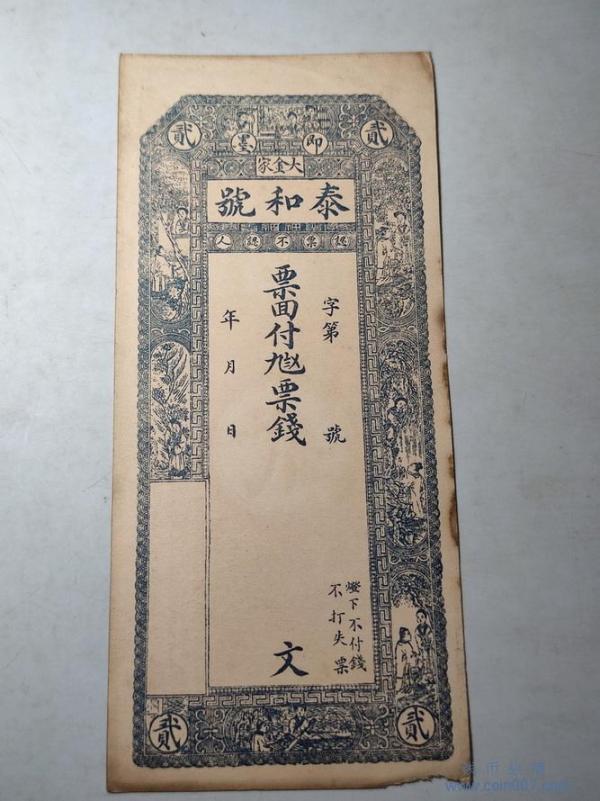 貳
即墨
貳
大金家
泰和號
認票不認人
字第 號
票面付 票錢 文
年 月 日
燈下不付錢
不打失票
貳
貳
www.coin007.com